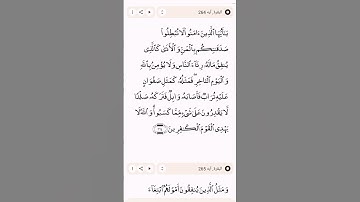 البقرة : آية 264
يَٰٓأَيُّهَا ٱلَّذِينَ ءَامَنُوا۟ لَا تُبْطِلُوا۟
صَدَقَٰتِكُم بِٱلْمَنِّ وَٱلْأَذَىٰ كَٱلَّذِى
يُنفِقُ مَالَهُۥ رِئَآءَ ٱلنَّاسِ وَلَا يُؤْمِنُ بِٱللَّهِ
وَٱلْيَوْمِ ٱلْءَاخِرِ فَمَثَلُهُۥ كَمَثَلِ صَفْوَانٍ
عَلَيْهِ تُرَابٌ فَأَصَابَهُۥ وَابِلٌ فَتَرَكَهُۥ صَلْدًا
لَّا يَقْدِرُونَ عَلَىٰ شَىْءٍ مِّمَّا كَسَبُوا۟ وَٱللَّهُ لَا
يَهْدِى ٱلْقَوْمَ ٱلْكَٰفِرِينَ
البقرة : آية 265
وَمَثَلُ ٱلَّذِينَ يُنفِقُونَ أَمْوَٰلَهُمُ ٱبْتِغَآءَ